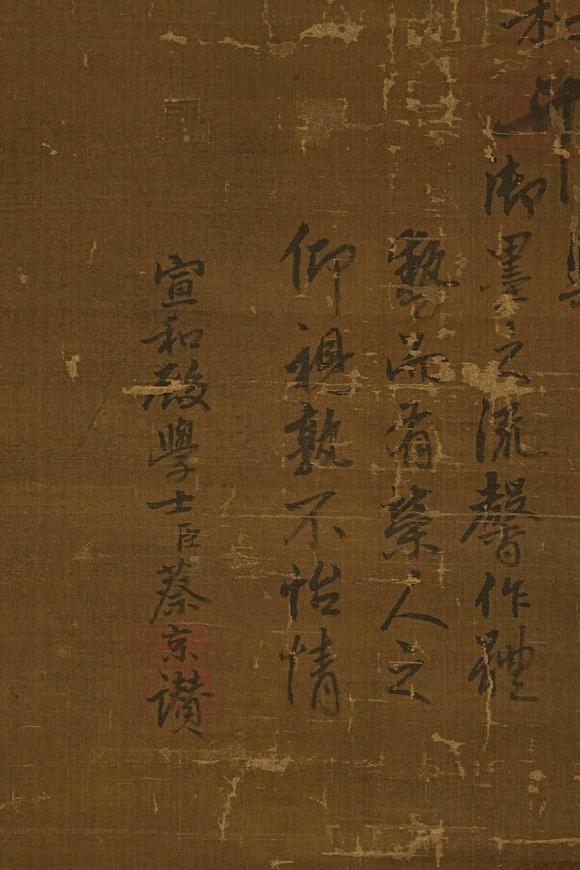 御墨之流馨作體
藝品有榮人之
仰視孰不怡情
宣和殿學士臣蔡京讃